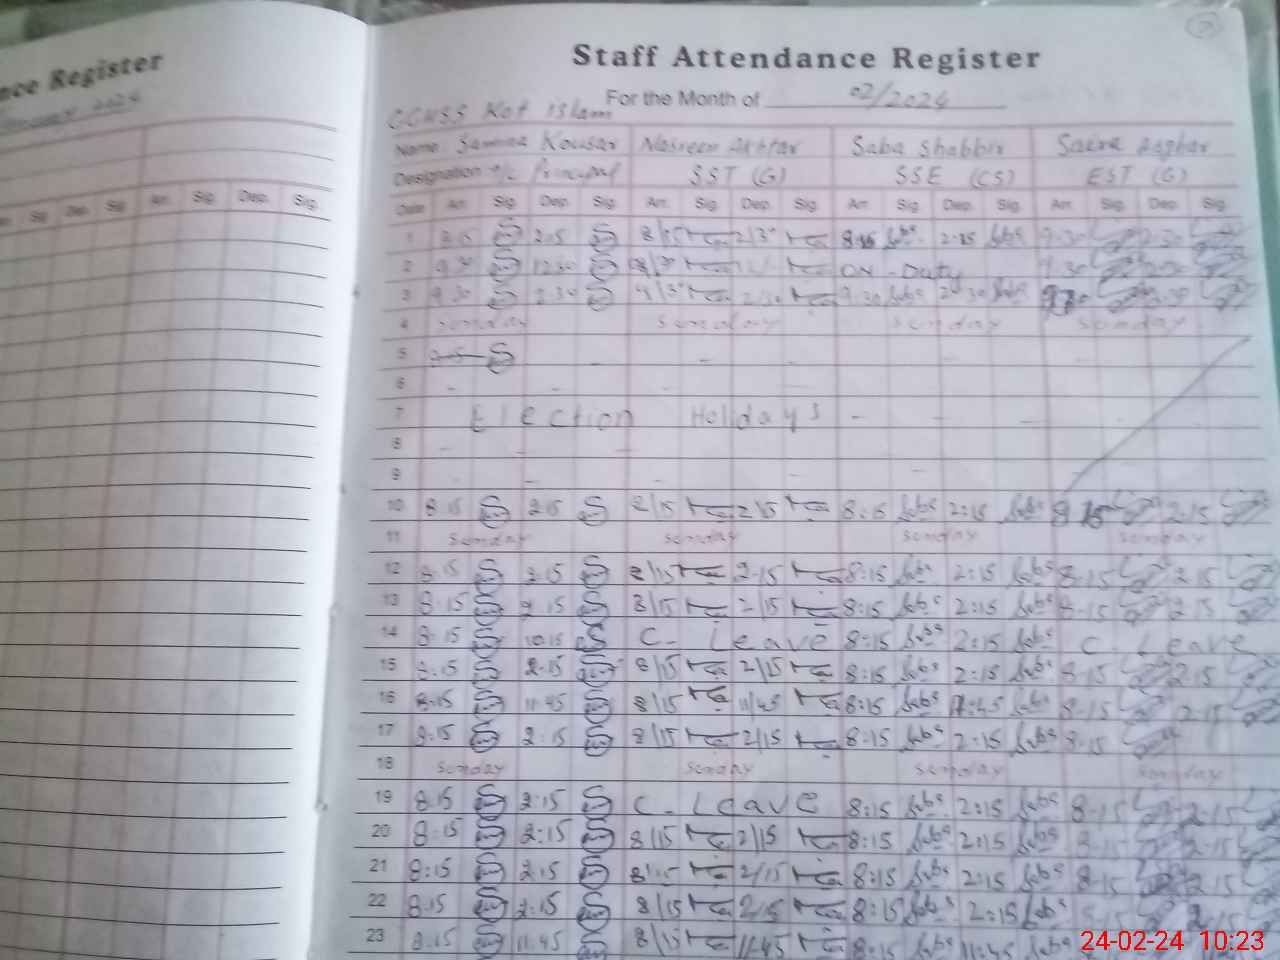 nce Register
2024
Staff Attendance Register
For the Month of 02/2024
Kot islam
Name Samina Kousar Nasreen Akhtar Saba Shabbir Saira Asghar
Designation Principal SST (G) SSE (CS) EST (G)
Dep. Sig. Arr. Sig. Dep. Sig.
Date Arr. Sig. Dep. Sig. Arr. Sig. Dep. Sig. Arr. Sig. Dep. Sig. Arr. Sig. Dep. Sig.
1 8:15 2:15 8/15 8:15 2:15 9:30 2:30
2 9:30 12:30 ON - Duty 9.30
3 9:30 2:30 2/30 9:30 2:30
4 sunday sunday sunday sunday
5
6
7 Election Holidays
8
9
10 8:15 2:15 8/15 2/15 8:15 2:15 8:15 2:15
11 sunday sunday sunday sunday
12 8:15 2:15 8/15 2:15 8:15 2:15 8:15 2:15
13 8:15 2:15 8/15 2/15 8:15 2:15 8:15 2:15
14 8:15 10:15 C- Leave 8:15 2:15 C. Leave
15 8:15 2:15 8/15 2/15 8:15 2:15 8:15 2:15
16 8:15 11:45 8/15 11/45 8:15 11:45 8:15 2:15
17 8:15 2:15 8/15 2/15 8:15 2:15 8:15
18 sunday sunday sunday sunday
19 8:15 2:15 C- Leave 8:15 2:15 8:15 2:15
20 8:15 2:15 8/15 2/15 8:15 2:15 8:15 2:15
21 8:15 2:15 8/15 2/15 8:15 2:15 8:15 2:15
22 8:15 2:15 8/15 2/15 8:15 2:15 8:15 2:15
23 8:15 11:45 8/15 11:45 8:15 11:45
24-02-24 10:23